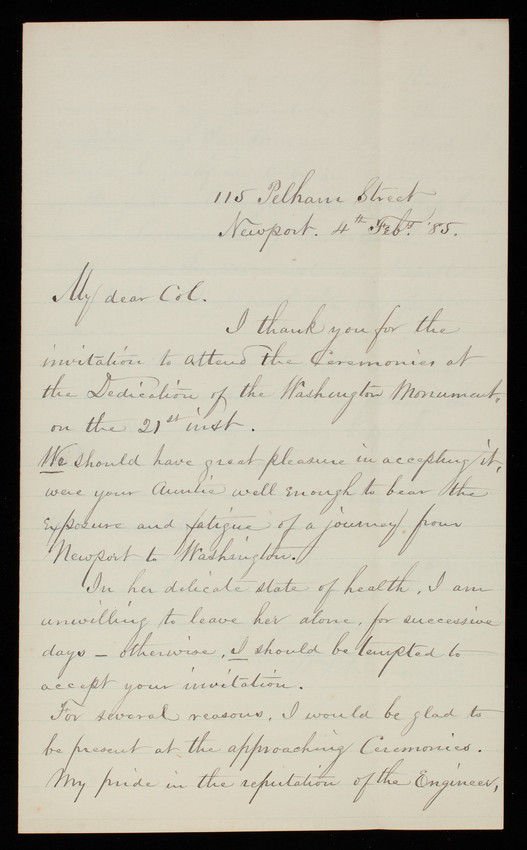 115 Pelham Street
Newport. 4th Feby. '85.
My dear Col.
I thank you for the
invitation to attend the Ceremonies at
the Dedication of the Washington Monument,
on the 21st inst.
We should have great pleasure in accepting it,
were your Auntie well enough to bear the
exposure and fatigue of a journey from
Newport to Washington.
In her delicate state of health, I am
unwilling to leave her alone, for successive
days – otherwise, I should be tempted to
accept your invitation.
For several reasons, I would be glad to
be present at the approaching Ceremonies.
My pride in the reputation of the Engineer,